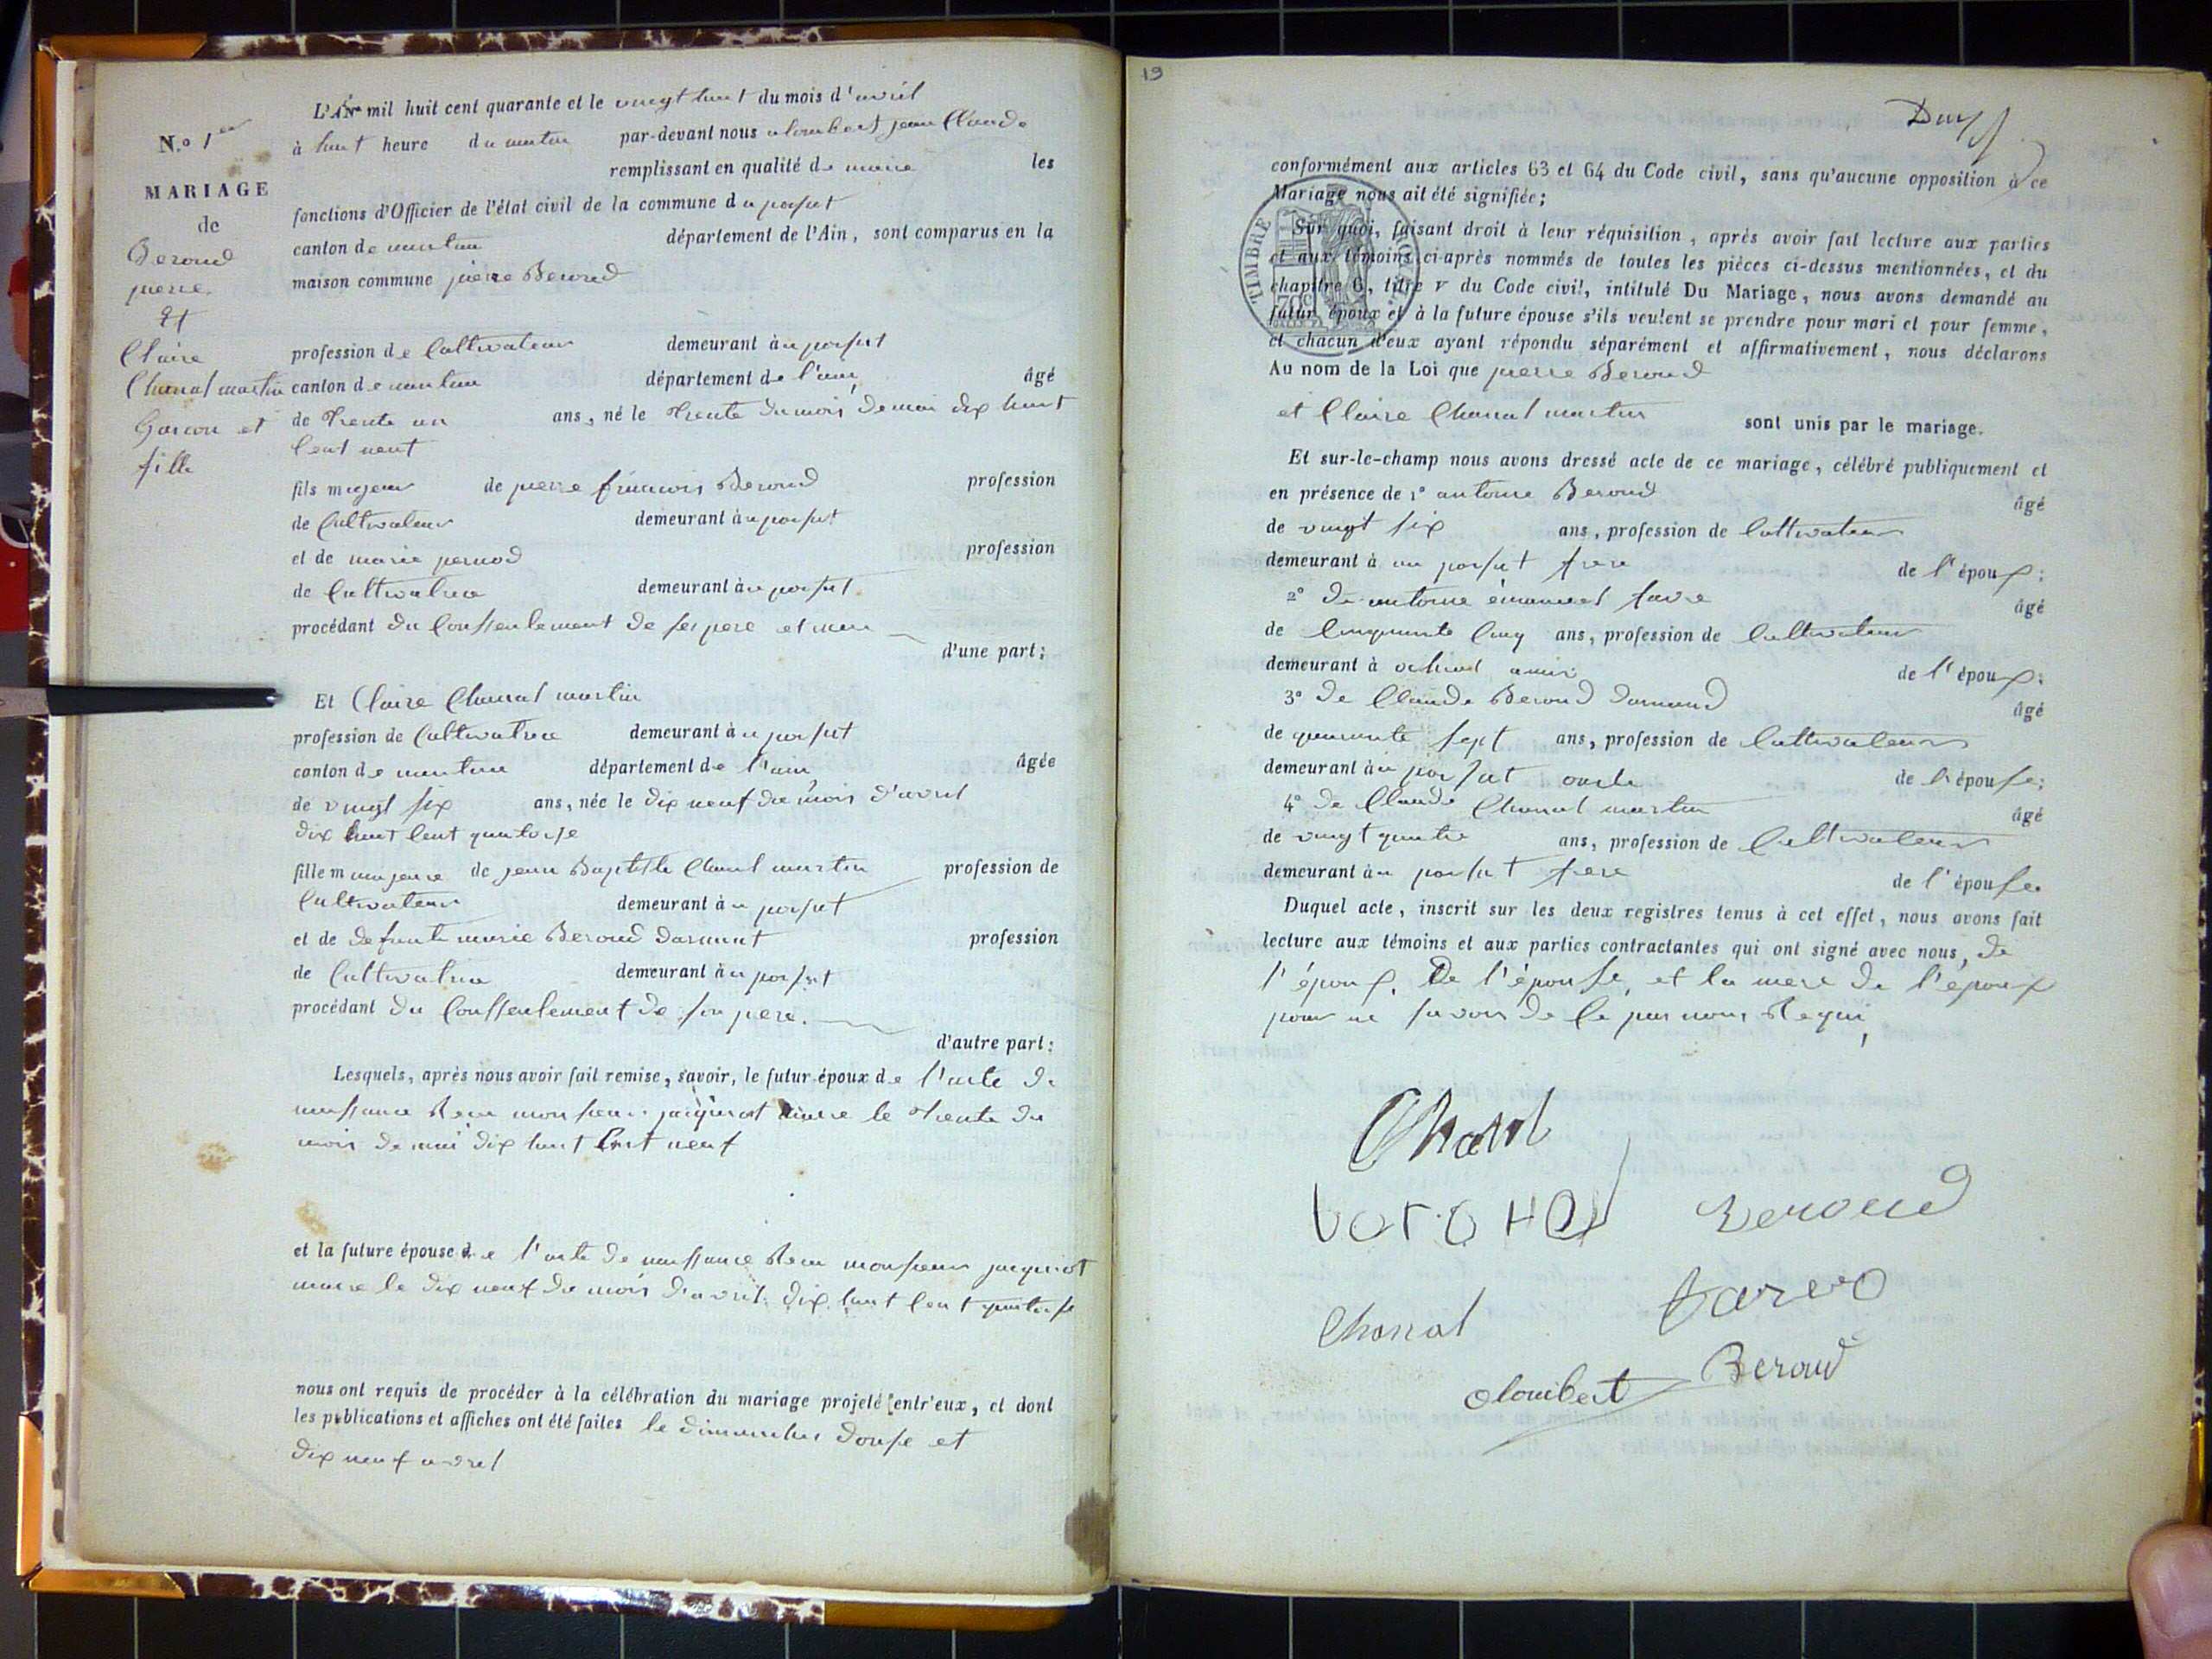 N.o 1er
MARIAGE
de
Beroud
pierre
et
Claire
Chanal martin
Garcon et
fille
L'AN mil huit cent quarante et le vingt huit du mois d'avril
à huit heure du matin par-devant nous alombert jean Claude
remplissant en qualité de maire les
fonctions d'Officier de l'état civil de la commune du poisat
canton de nantua département de l'Ain, sont comparus en la
maison commune pierre Beroud
profession de Cultivateur demeurant au poisat
canton de nantua département de l'ain âgé
de trente un ans, né le trente du mois de mai dix huit
Cent neuf
fils majeur de pierre francois Beroud profession
de Cultivateur demeurant au poisat
et de marie pernod profession
de Cultivatrice demeurant au poisat
procédant du Consentement de ses pere et mere
d'une part;
Et Claire Chanal martin
profession de Cultivatrice demeurant au poisat
canton de nantua département de l'ain âgée
de vingt six ans, née le dix neuf du mois d'avril
dix huit Cent quatorse
fille majeure de jean Baptiste Chanal martin profession de
Cultivateur demeurant au poisat
et de defunte marie Beroud darmant profession
de Cultivatrice demeurant au poisat
procédant du Consentement de son pere.
d'autre part;
Lesquels, après nous avoir fait remise, savoir, le futur époux de l'acte de
naissance monsieur maire le trente du
mois de mai dix huit Cent neuf
et la future épouse de l'acte de naissance monsieur
maire le dix neuf du mois d'avril dix huit Cent quatorse
nous ont requis de procéder à la célébration du mariage projeté entr'eux, et dont
les publications et affiches ont été faites le dimanches douse et
dix neuf avril
19
conformément aux articles 63 et 64 du Code civil, sans qu'aucune opposition à ce
Mariage nous ait été signifiée;
TIMBRE ROYAL
70c
Sur quoi, faisant droit à leur réquisition, après avoir fait lecture aux parties
et aux témoins ci-après nommés de toutes les pièces ci-dessus mentionnées, et du
chapitre 6, titre v du Code civil, intitulé Du Mariage, nous avons demandé au
futur époux et à la future épouse s'ils veulent se prendre pour mari et pour femme,
et chacun d'eux ayant répondu séparément et affirmativement, nous déclarons
Au nom de la Loi que pierre Beroud
et Claire Chanal martin sont unis par le mariage.
Et sur-le-champ nous avons dressé acte de ce mariage, célébré publiquement et
en présence de 1° antoine Beroud âgé
de vingt six ans, profession de Cultivateur
demeurant à au poisat frere de l'époux;
2° de antoine émanuel favre âgé
de Cinquante Cinq ans, profession de Cultivateur
demeurant à ami de l'époux;
3° de Claude Beroud darmand âgé
de quarante sept ans, profession de Cultivateur
demeurant au poisat oncle de l'épouse;
4° de Claude Chanal martin âgé
de vingt quatre ans, profession de Cultivateur
demeurant au poisat frere de l'épouse
Duquel acte, inscrit sur les deux registres tenus à cet effet, nous avons fait
lecture aux témoins et aux parties contractantes qui ont signé avec nous, de
l'époux. De l'épouse, et la mere de l'époux
pour ne savoir de Ce par nous Requi
Beroud
Chanal
favre
alombert
Beroud